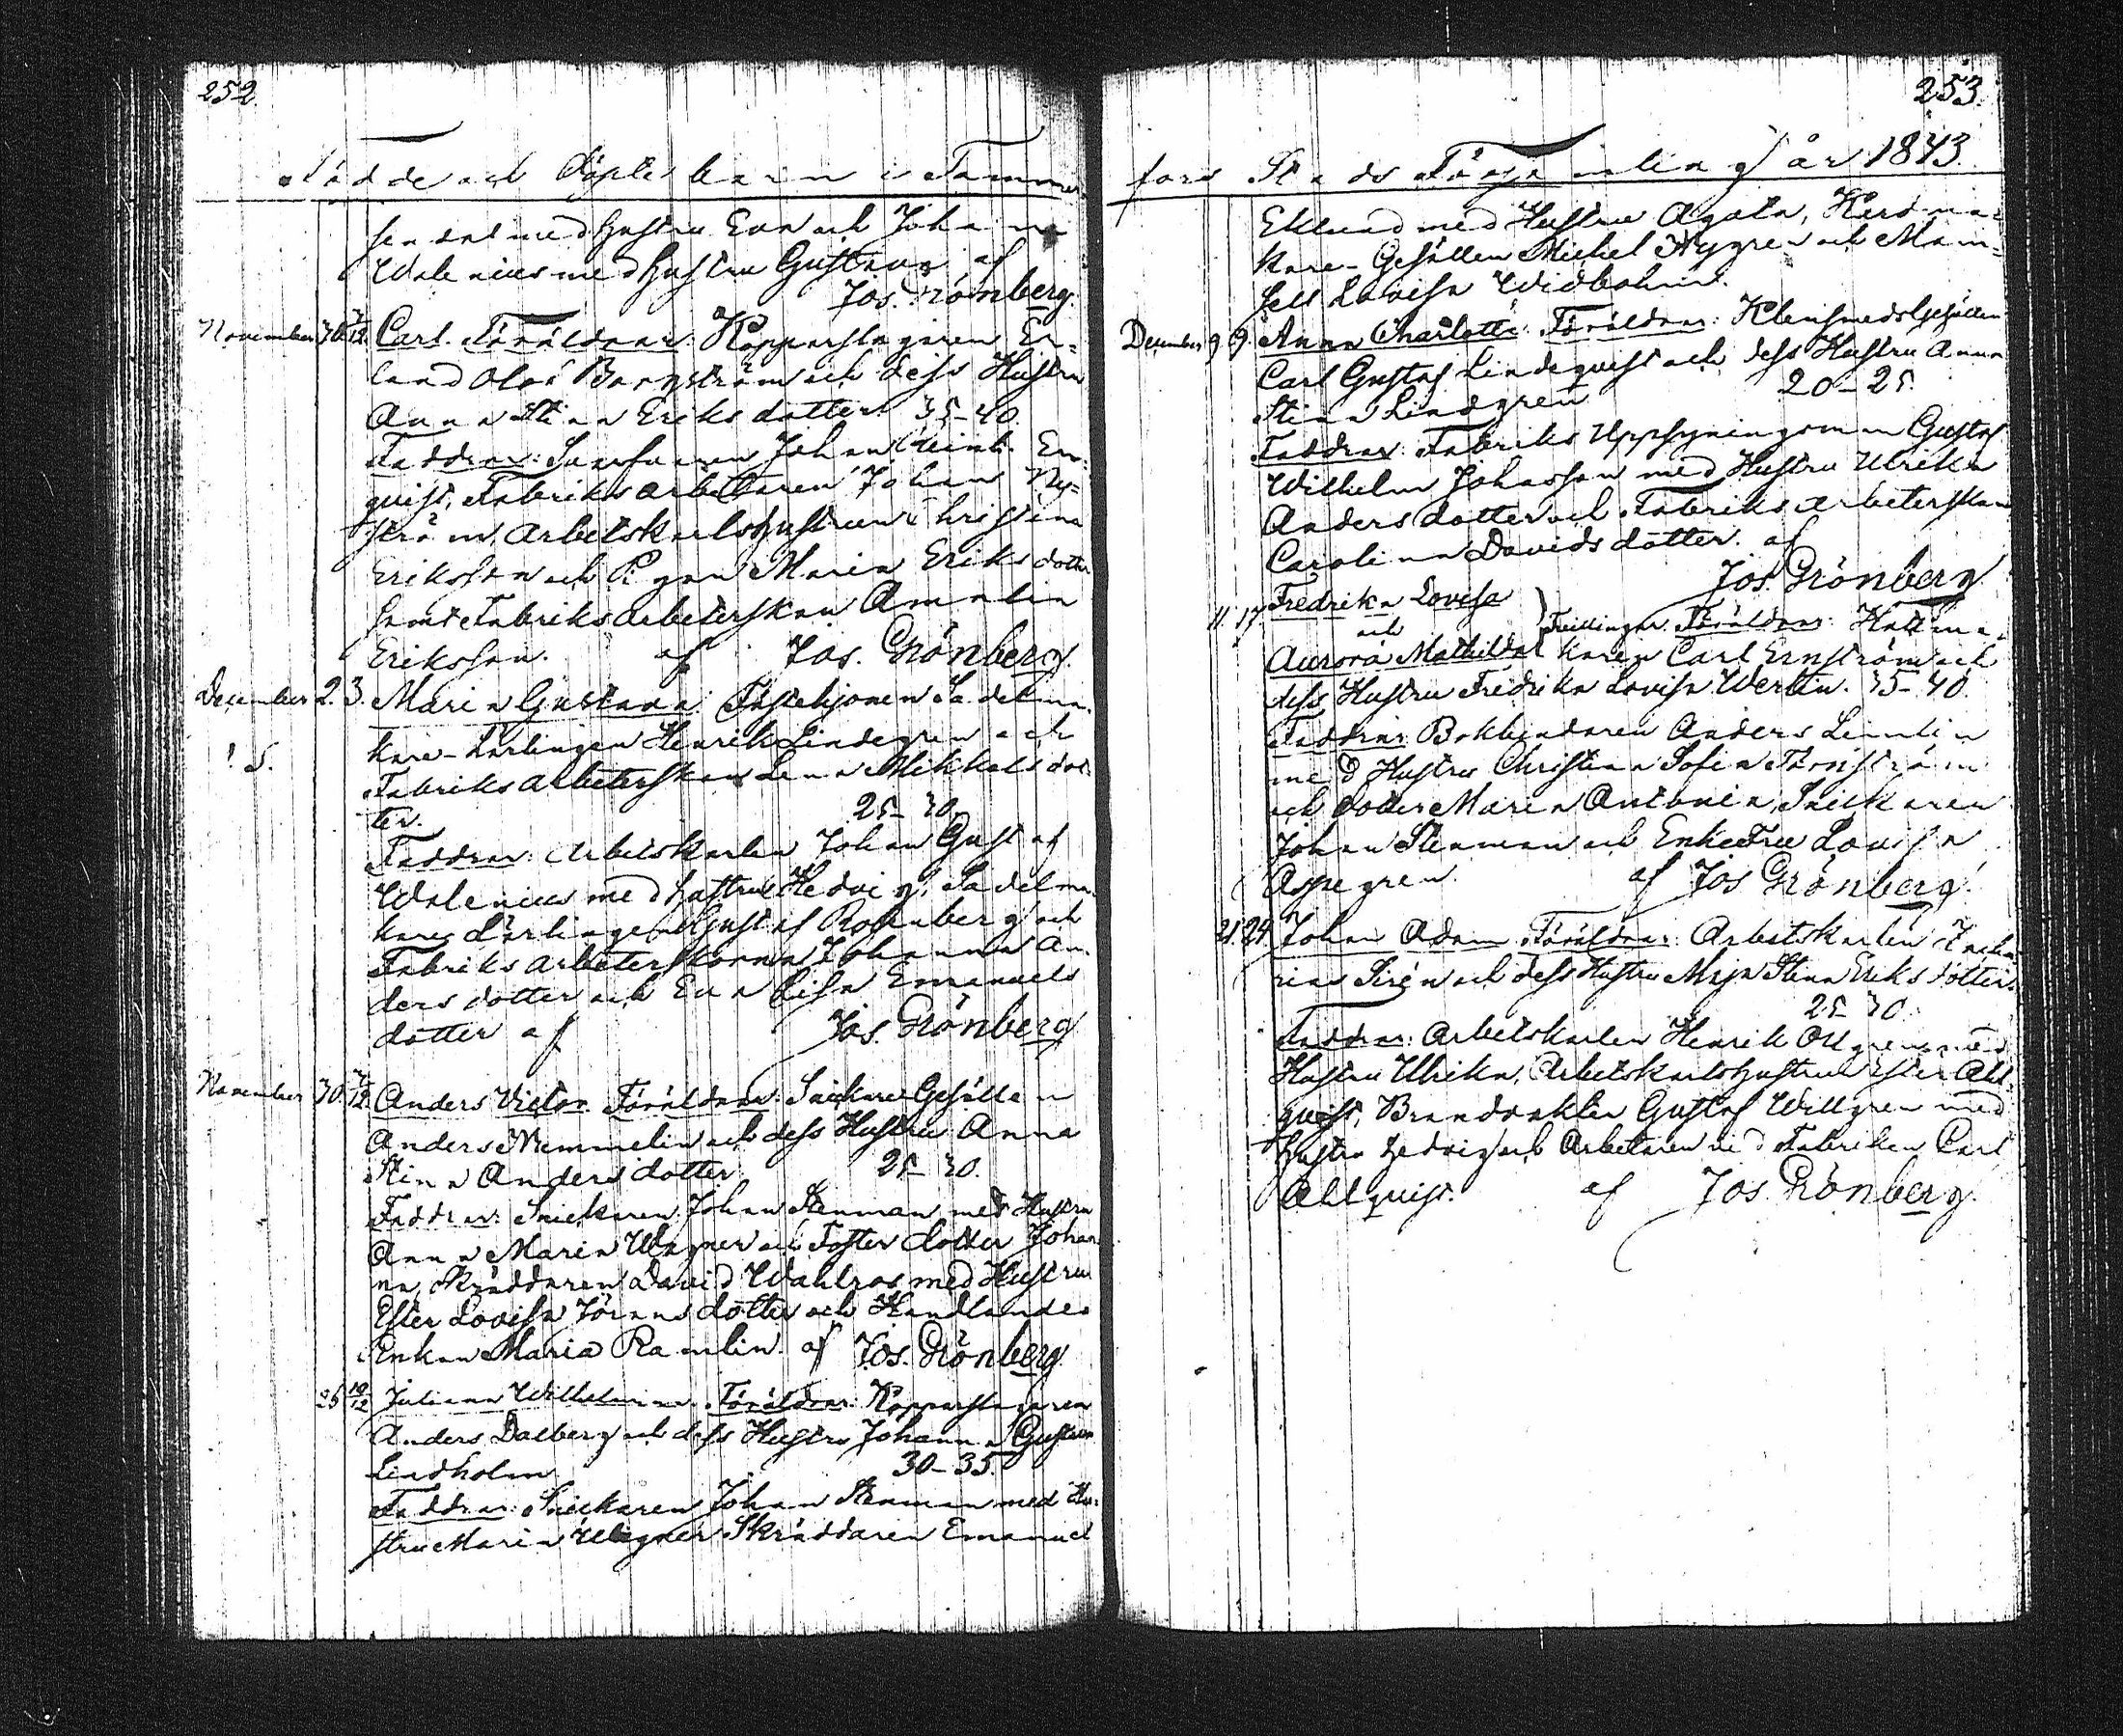 252.
Födde och Döpte barn i Tammer
sendal med hustru Eva och Johan
Walenius med hustru Gustava af
Jos. Grönberg.
November 30. 3/12. Carl. Föräldrar: Kopparslagaren Er-
land Olof Bergström och dess Hustru
Anna Stina Eriksdotter 35-40.
Faddrar: Johan En-
quist, Fabriksarbetaren Johan Ny-
ström, Arbetskarlshustrun Christina
Eriksson och Pigan Maria Eriksdotter
samt Fabriksarbeterskan Amalia
Eriksson. af Jos. Grönberg.
December 2. 3. Maria Gustava: Fästehjonen Sadelma-
kare-Lärlingen Henrik Lindegren och
Fabriksarbeterskan Lena Mikkelsdot-
ter. 25-30.
Faddrar: Arbetskarlen Johan Gustaf
Walenius med hustru Hedvig, Sadelma-
kare Lärlingen Gustaf Rosenberg och
Fabriksarbeterskorna Johanna An-
dersdotter och Eva Lisa Emanuels
dotter af Jos. Grönberg
November 30. 3/12. Anders Victor. Föräldrar: Snickare Gesällen
Anders Nemmelin och dess Hustru Anna
Stina Andersdotter. 25-30.
Faddrar: Snickaren Johan Stenman med Hustru
Anna Maria Wagner och Fosterdotter Johan-
na, Skräddaren David Wahlros med Hustru
Ester Lovisa Jöransdotter och Handlandes
Enkan Maria Ramlin. af Jos. Grönberg.
26 10/12 Juliana Wilhelmina. Föräldrar: Kopparslagaren
Anders Dalberg och dess Hustru Johanna Gustava
Lindholm 30-35.
Faddrar: Snickaren Johan Stenman med Hu-
stru Maria Wagner Skräddaren Emanuel
253.
fors Stads Församling år 1843.
Eklund med Hustru Agata,
kare-Gesällen Michel Nygren och Mam-
sell Lovisa Widbohm.
December 9 9. Anna Charlotta: Föräldrar: Klensmedsgesällen
Carl Gustaf Lindequist och dess Hustru Anna
Stina Lindgren 20-25.
Faddrar: Fabriks Uppsyningsman Gustaf
Wilhelm Johansson med Hustru Ulrika
Andersdotter och Fabriksarbeterskan
Carolina Davidsdotter. af
Jos. Grönberg
11. 17 Fredrika Lovisa
och
Aurora Mathilda Tvillingar. Föräldrar: Hattma-
karen Carl Ernström och
dess Hustru Fredrika Lovisa Werlin. 35-40.
Faddrar: Bokbindaren Anders Lennlin
med Hustru Christina Sofia Törnström
och dotter Maria Antonia, Snickaren
Johan Stenman och EnkeFru Lovisa
Aspegren. af Jos Grönberg.
21. 24. Johan Adam. Föräldrar: Arbetskarlen Zacha-
rias Sirén och dess Hustru Maja Stina Eriksdotter.
25-30.
Faddrar: Arbetskarlen Henrik Ollgren med
Hustru Ulrika, Arbetskarlshustrun Ester Ahl-
quist, Brandvakten Gustaf Willgren med
hustru Hedvig och Arbetaren vid Fabriken Carl
Ahlquist. af Jos. Grönberg.